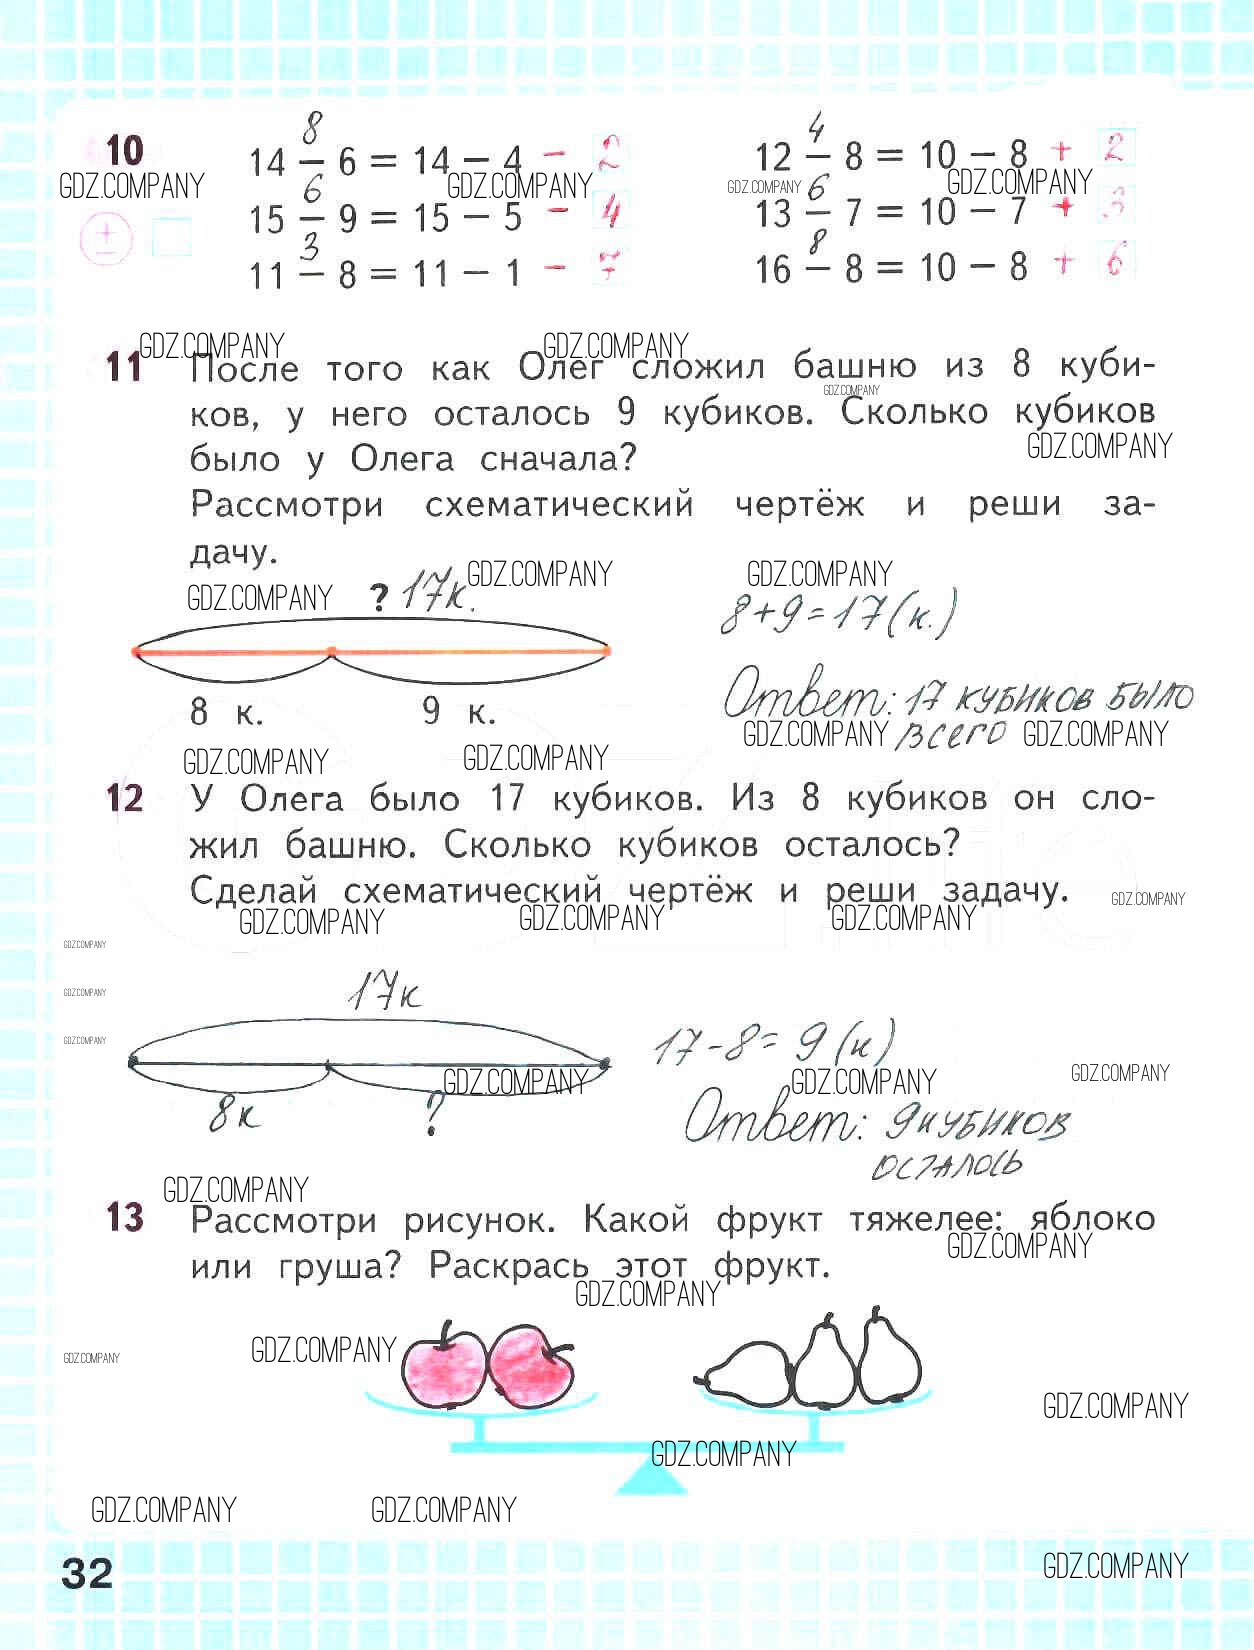 10
8
14 − 6 = 14 − 4 − 2
4
12 − 8 = 10 − 8 + 2
GDZ.COMPANY GDZ.COMPANY GDZ.COMPANY GDZ.COMPANY
6
15 − 9 = 15 − 5 − 4
6
13 − 7 = 10 − 7 + 3
±
3
11 − 8 = 11 − 1 − 7
8
16 − 8 = 10 − 8 + 6
GDZ.COMPANY GDZ.COMPANY
11 После того как Олег сложил башню из 8 куби-
GDZ.COMPANY
ков, у него осталось 9 кубиков. Сколько кубиков
GDZ.COMPANY
было у Олега сначала?
Рассмотри схематический чертёж и реши за-
дачу.
GDZ.COMPANY GDZ.COMPANY GDZ.COMPANY
? 17к.
8+9=17(к.)
8 к. 9 к.
Ответ: 17 кубиков было
всего
GDZ.COMPANY GDZ.COMPANY
GDZ.COMPANY GDZ.COMPANY
12 У Олега было 17 кубиков. Из 8 кубиков он сло-
жил башню. Сколько кубиков осталось?
Сделай схематический чертёж и реши задачу.
GDZ.COMPANY
GDZ.COMPANY GDZ.COMPANY GDZ.COMPANY
GDZ.COMPANY
GDZ.COMPANY
GDZ.COMPANY
17к
17-8=9(к)
GDZ.COMPANY GDZ.COMPANY GDZ.COMPANY
8к ?
Ответ: 9кубиков
осталось
GDZ.COMPANY
13 Рассмотри рисунок. Какой фрукт тяжелее: яблоко
GDZ.COMPANY
или груша? Раскрась этот фрукт.
GDZ.COMPANY
GDZ.COMPANY
GDZ.COMPANY
GDZ.COMPANY
GDZ.COMPANY
GDZ.COMPANY GDZ.COMPANY
32
GDZ.COMPANY